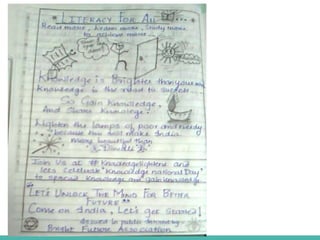 "LITERACY FOR ALL
Read more, Learn more, Study more
to achieve more
Knowledge is Brighter than your
Knowledge is the road to success.
So Gain Knowledge,
And Share Knowledge.
Lighten the lamps of poor and needy
because this will make India
more beautiful than
Join Us at # Knowledgelightens and
lets celebrate "Knowledge national Day"
to spread knowledge and gain knowledge
"LET'S UNLOCK THE MIND FOR BETTER
FUTURE"
Come on India, Let's get Started!
issued in public
Bright Future Association